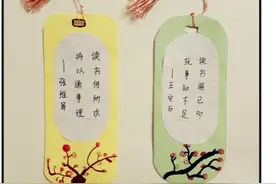 读书何所求
将以通事理
——张维屏
读书谓已多
抚事知不足
——王安石